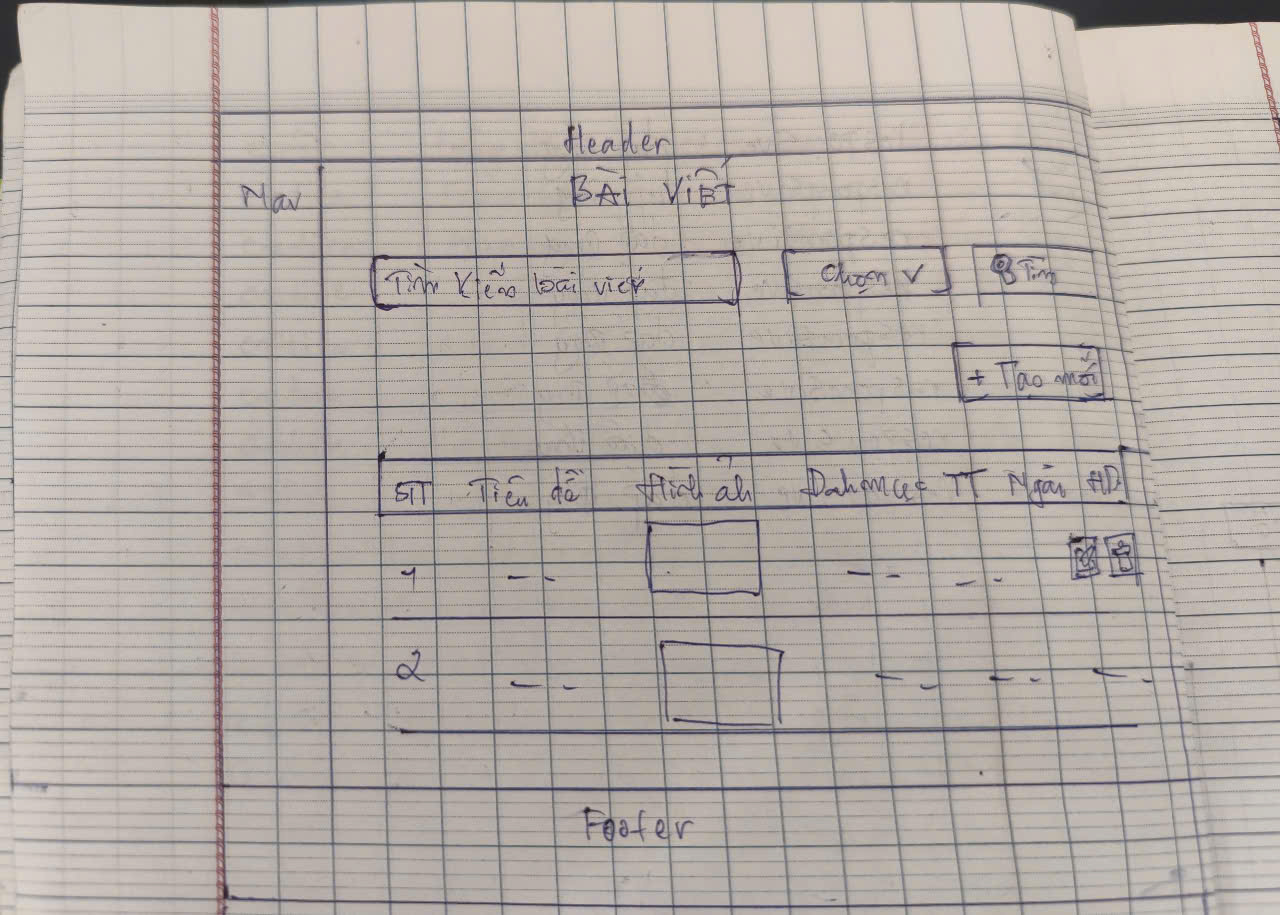 Header
Nav
BÀI VIẾT
Tìm kiếm bài viết
Chọn V
Tìm
+ Tạo mới
STT Tiêu đề Hình ảh Dahmục TT Ngày HĐ
1
2
Footer